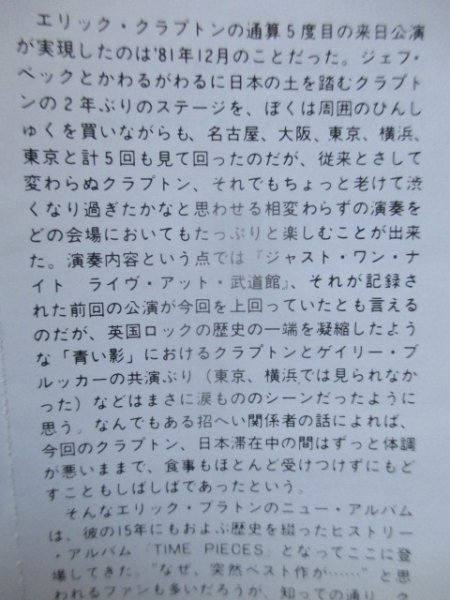 エリック・クラプトンの通算5度目の来日公演
が実現したのは'81年12月のことだった。ジェフ・
ベックとかわるがわるに日本の土を踏むクラプト
ンの2年ぶりのステージを、ぼくは周囲のひんし
ゅくを買いながらも、名古屋、大阪、東京、横浜、
東京と計5回も見て回ったのだが、従来とさして
変わらぬクラプトン、それでもちょっと老けて渋
くなり過ぎたかなと思わせる相変わらずの演奏を
どの会場においてもたっぷりと楽しむことが出来
た。演奏内容という点では『ジャスト・ワン・ナ
イト　ライヴ・アット・武道館』、それが記録さ
れた前回の公演が今回を上回っていたとも言える
のだが、英国ロックの歴史の一端を凝縮したよう
な「青い影」におけるクラプトンとゲイリー・ブ
ルッカーの共演ぶり（東京、横浜では見られなか
った）などはまさに涙もののシーンだったように
思う。なんでもある招へい関係者の話によれば、
今回のクラプトン、日本滞在中の間はずっと体調
が悪いままで、食事もほとんど受けつけずにもど
すこともしばしばであったという。
そんなエリック・プラトンのニュー・アルバム
は、彼の15年にもおよぶ歴史を綴ったヒストリー
・アルバム『TIME PIECES』となってここに登
場してきた。"なぜ、突然ベスト作が……"と思
われるファンも多いだろうが、知っての通り、ク